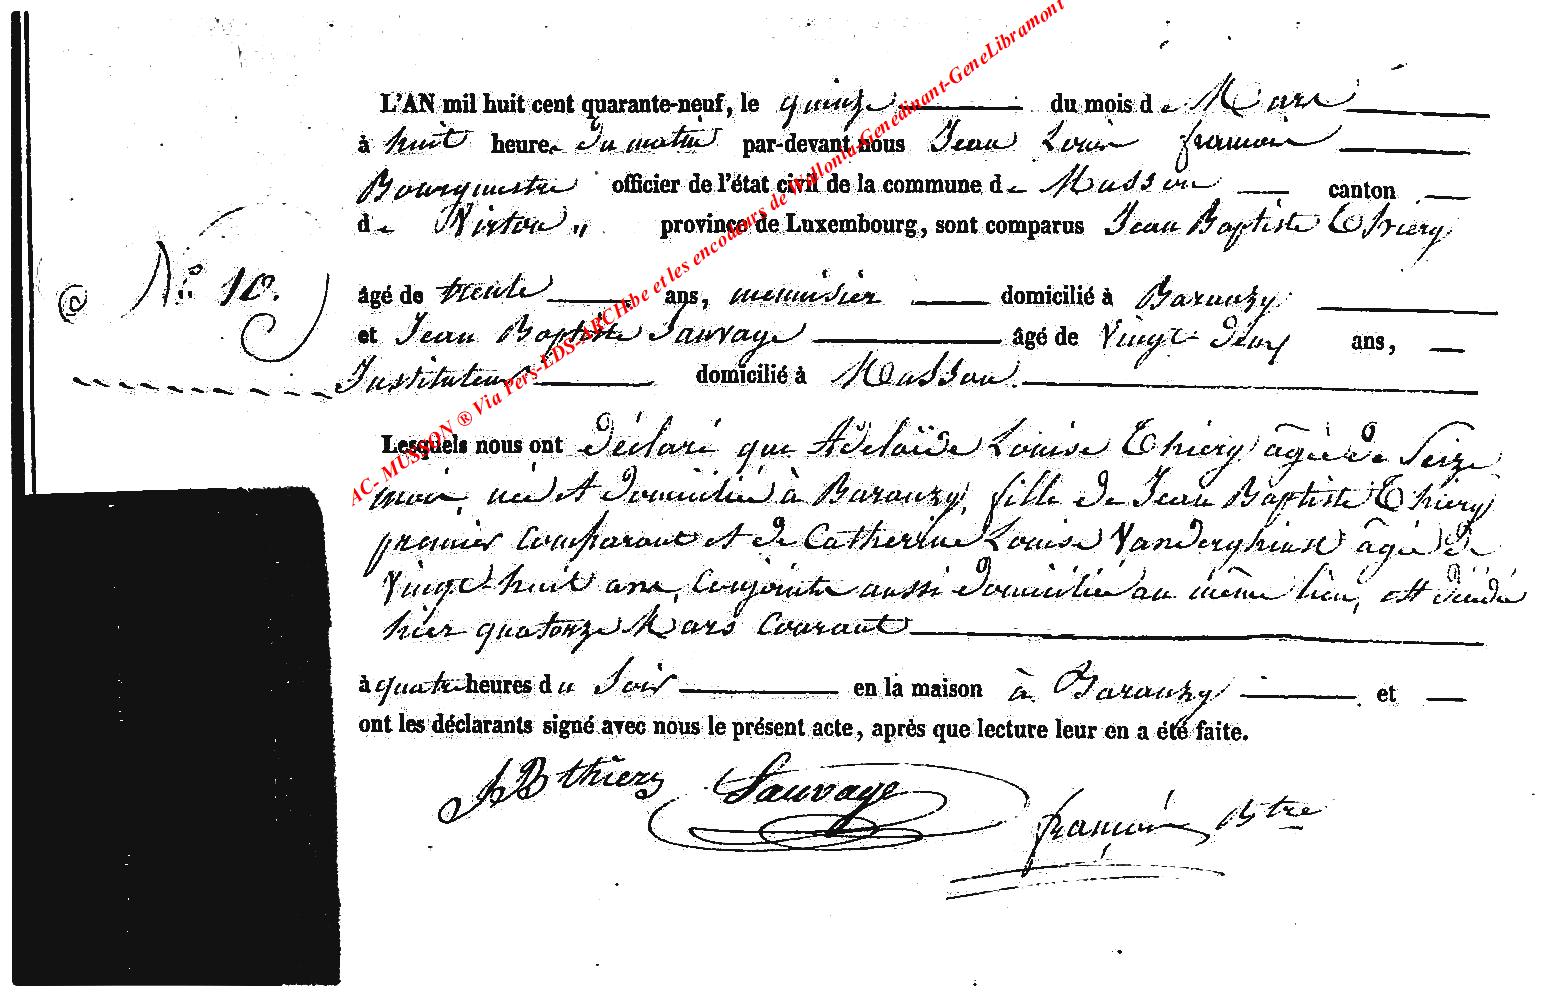 L'AN mil huit cent quarante-neuf, le quinze du mois de Mars
à huit heures du matin par-devant nous Jean Louis françois
Bourgmestre officier de l'état civil de la commune de Musson canton
de Virton „ province de Luxembourg, sont comparus Jean Baptiste Thiery
N° 10.
âgé de trente ans, menuisier domicilié à Baranzy
et Jean Baptiste Sauvage âgé de Vingt-deux ans,
Instituteur domicilié à Musson.
Lesquels nous ont déclaré que Adélaïde Louise Thiery âgée de Seize
mois, née et domiciliée à Baranzy, fille de Jean Baptiste Thiery
premier comparant et de Catherine Louise âgée de
Vingt-huit ans, conjoints aussi domiciliés au même lieu, est décédée
hier quatorze Mars courant
à quatre heures du Soir en la maison à Baranzy et
ont les déclarants signé avec nous le présent acte, après que lecture leur en a été faite.
JB thiery Sauvage françois, Btre
AC- MUSSON ® Via Pers-EDS-ARCH.be et les encodeurs de Wallonia-Genedinant-GeneLibramont